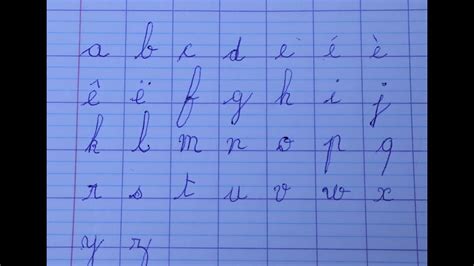 a b c d e é è
ê ë f g h i j
k l m n o p q
r s t u v w x
y z